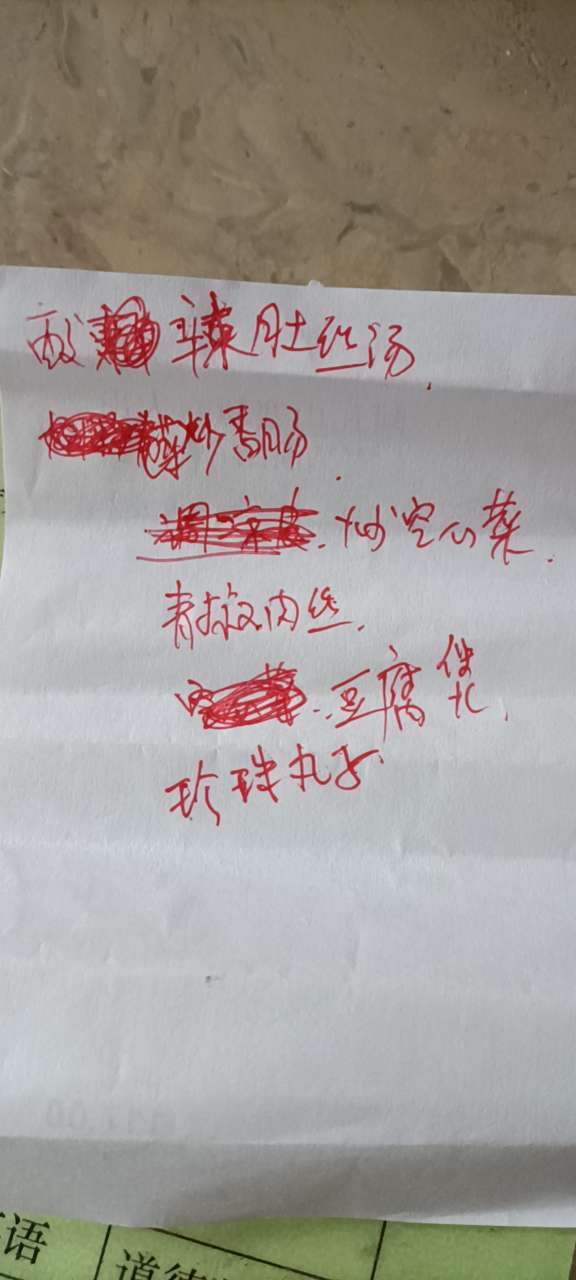 酸辣肚丝汤.
炒香肠.
炒空心菜.
青椒肉丝.
豆腐煲.
珍珠丸子
语
道德